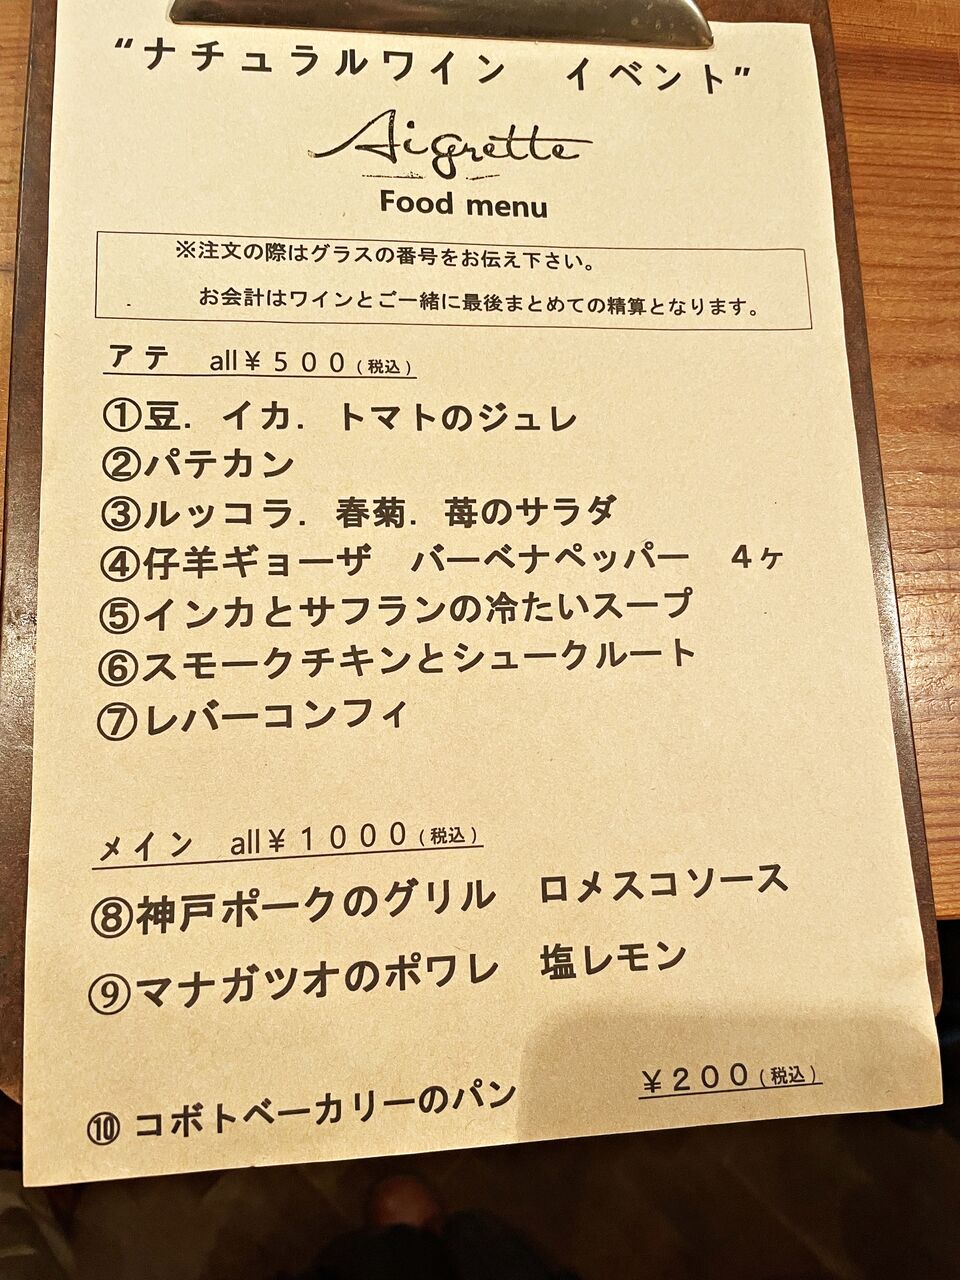 “ナチュラルワイン　イベント”
Aigrette
Food menu
※注文の際はグラスの番号をお伝え下さい。
お会計はワインとご一緒に最後まとめての精算となります。
アテ　all￥５００（税込）
①豆．イカ．トマトのジュレ
②パテカン
③ルッコラ．春菊．苺のサラダ
④仔羊ギョーザ　バーベナペッパー　４ヶ
⑤インカとサフランの冷たいスープ
⑥スモークチキンとシュークルート
⑦レバーコンフィ
メイン　all￥１０００（税込）
⑧神戸ポークのグリル　ロメスコソース
⑨マナガツオのポワレ　塩レモン
⑩ コボトベーカリーのパン　￥２００（税込）